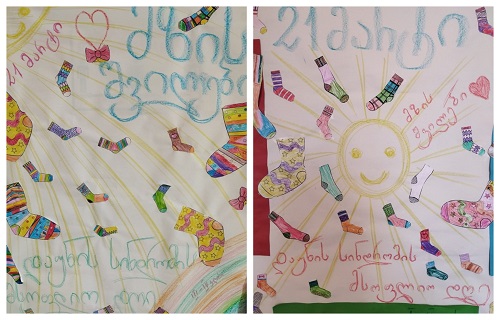 21 მარტი
მზის
შვილები
დაუნის სინდრომის
მსოფლიო დღე
21 მარტი
მზის
შვილები
დაუნის სინდრომის
მსოფლიო დღე